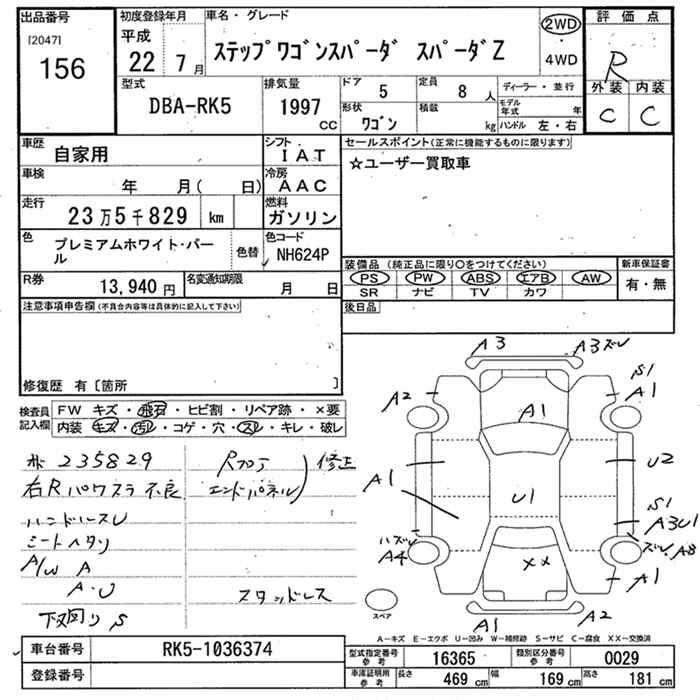 出品番号
[2047]
156
初度登録年月
平成
22年 7月
車名・グレード
ステップワゴンスパーダ スパーダZ
2WD
・
4WD
評価点
R
外装 内装
C C
型式
DBA-RK5
排気量
1997
CC
ドア 5
定員 8 人
形状 ワゴン
積載 kg
ディーラー・並行
モデル年式 年
ハンドル 左・右
車歴
自家用
シフト
IAT
車検
年 月( 日)
冷房
AAC
走行
23万5千829 km
燃料
ガソリン
色
プレミアムホワイト・パール
色替
色コード
NH624P
R券
13,940 円
名変通知期限
月 日
セールスポイント(正常に機能するものに限ります)
☆ユーザー買取車
装備品 (純正品に限り○をつけてください)
PS PW ABS エアB AW
SR ナビ TV カワ
新車保証書
有・無
後日品
注意事項申告欄(不具合内容等は具体的に記入して下さい)
修復歴 有〔箇所 〕
検査員記入欄
FW キズ・飛石・ヒビ割・リペア跡・×要
内装 キズ・汚レ・コゲ・穴・スレ・キレ・破レ
235829
右Rパワスラ不良
ハンドルスレ
シートヘタリ
A/W A
A・U
下廻りS
Rフロア
エンドパネル
修正
スタッドレス
A3
A3ズレ
S1
A1
A2
A1
A1
U2
U1
S1
A3U1
ハズレ
A4
ズレA8
××
A1
A1
A2
スペア
A-キズ E-エクボ U-凹み W-補修跡 S-サビ C-腐食 XX-交換済
車台番号
RK5-1036374
登録番号
型式指定番号 参考
16365
類別区分番号 参考
0029
車庫証明用 参考
長さ 469 cm
幅 169 cm
高さ 181 cm